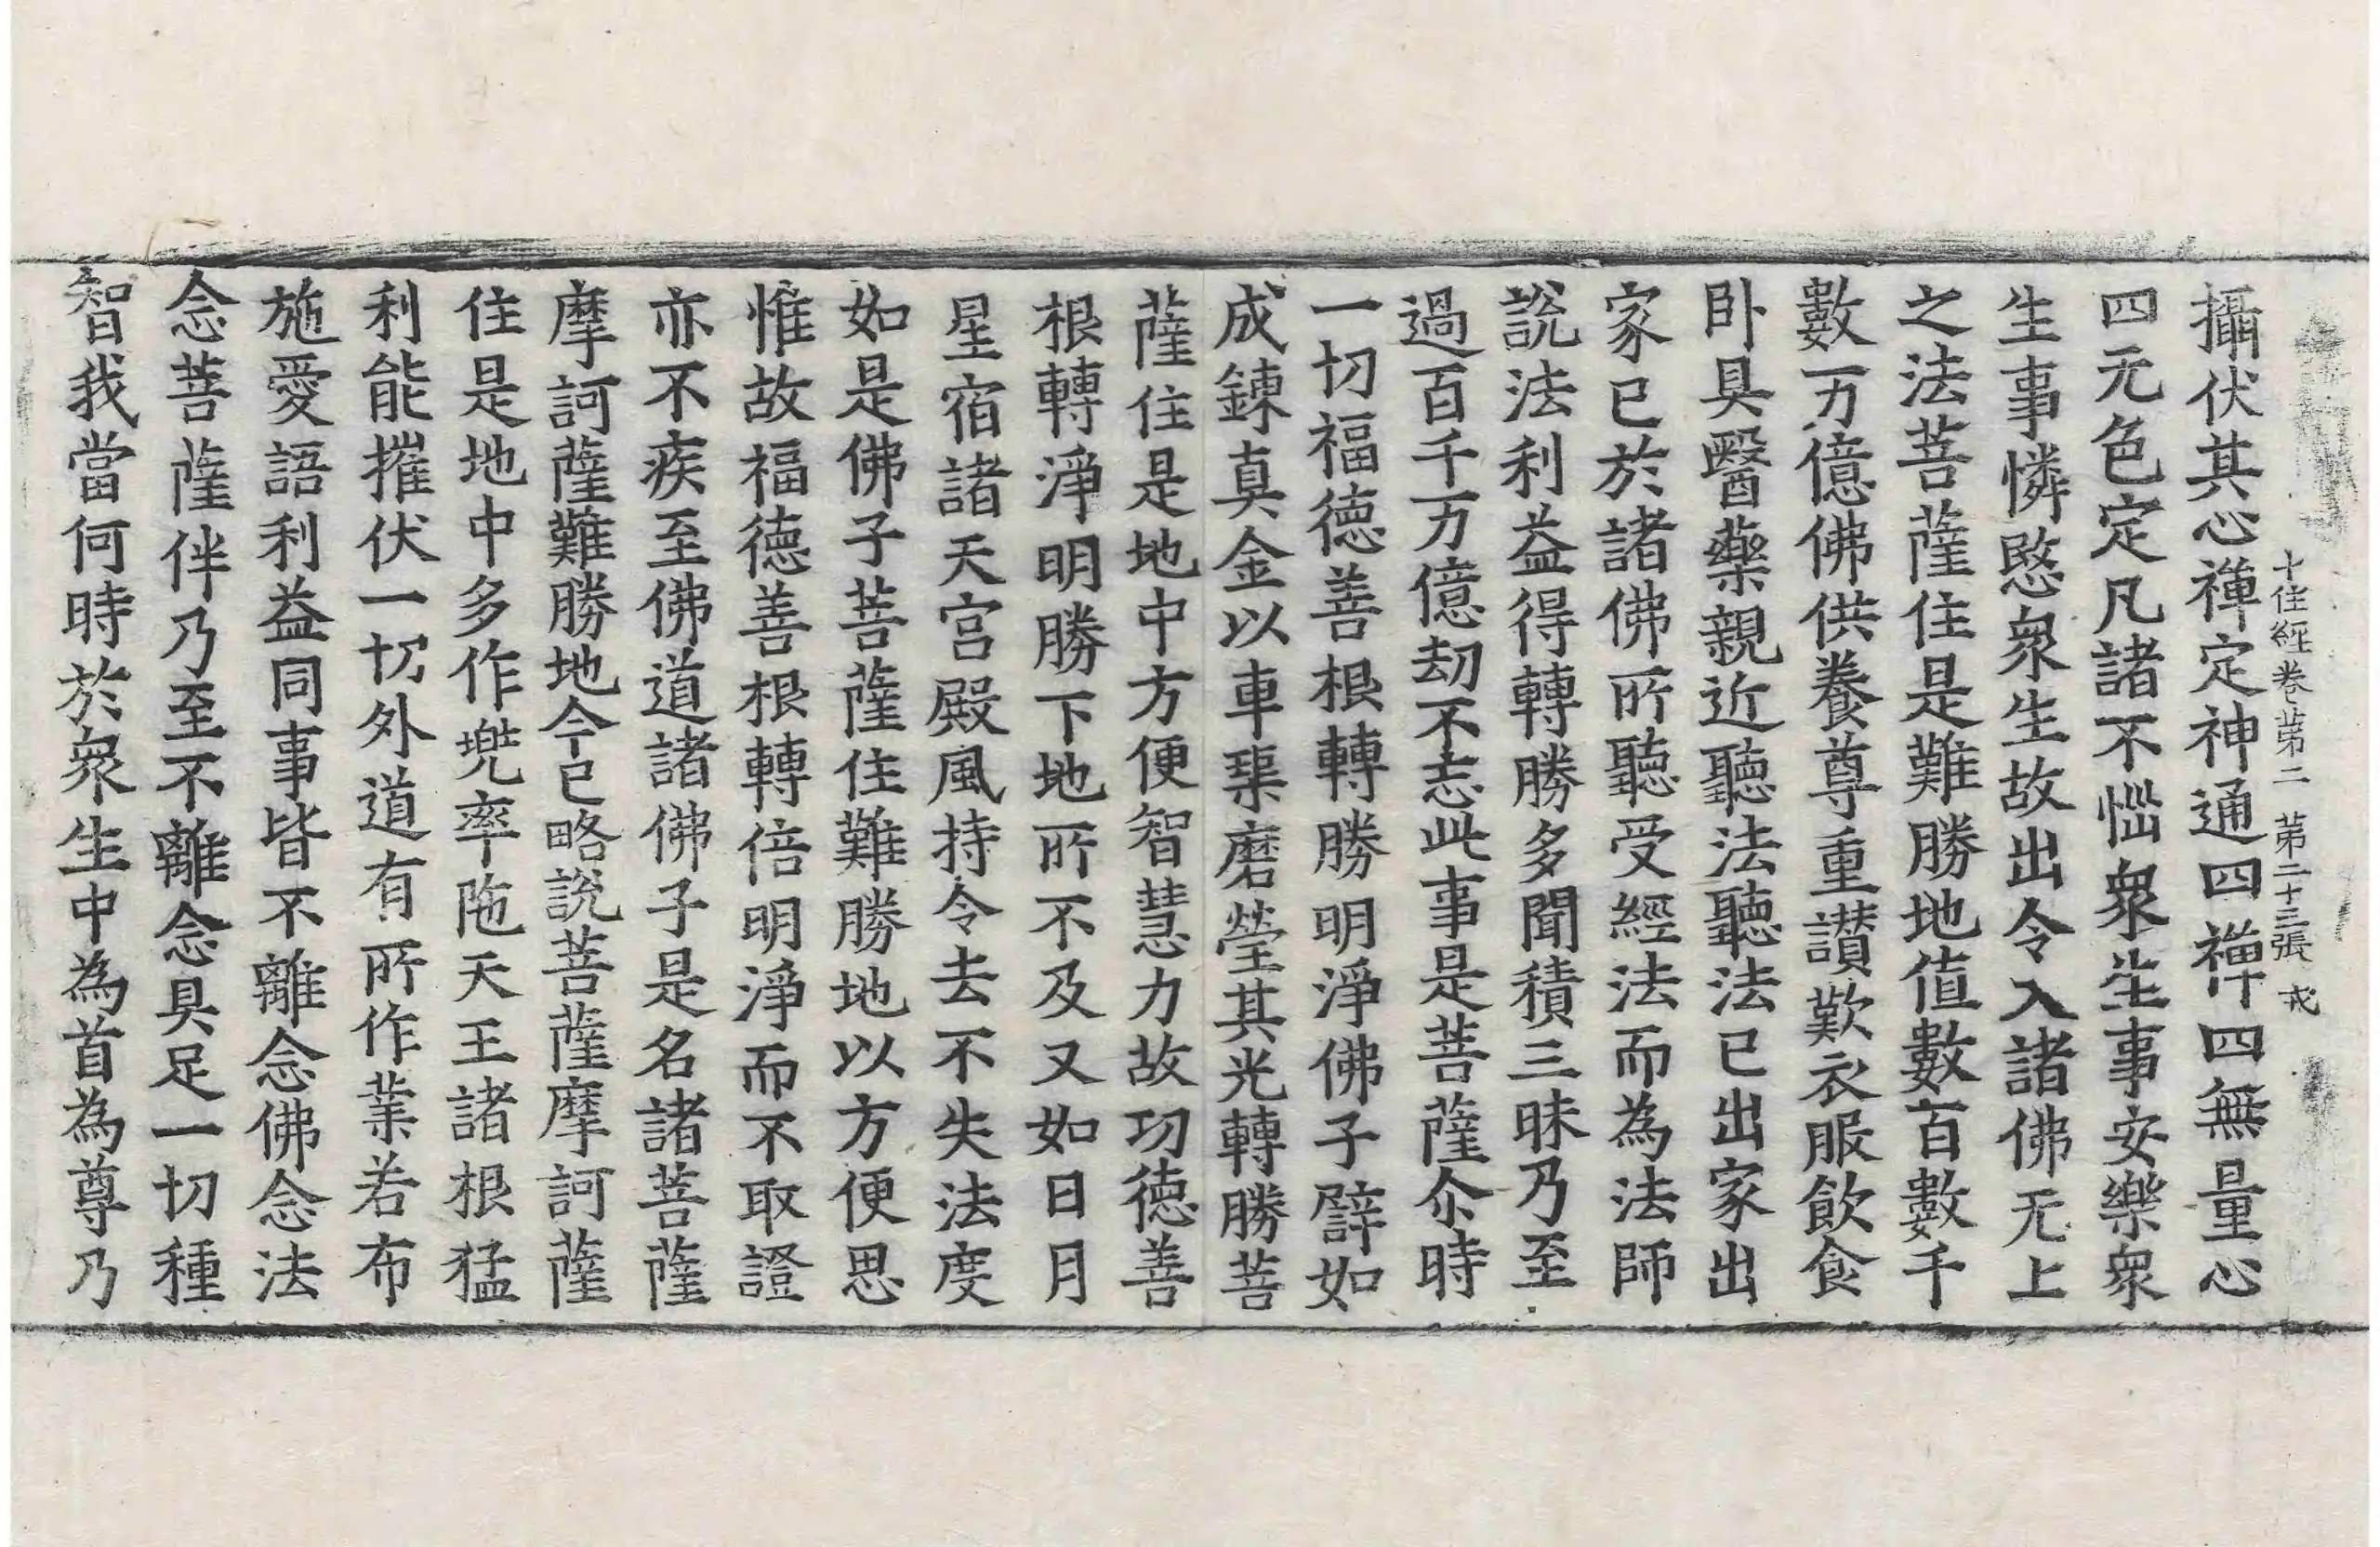 十住經卷第二 第二十三張 戎
攝伏其心禪定神通四禪四無量心
四无色定凡諸不惱衆生事安樂衆
生事憐愍衆生故出令入諸佛无上
之法菩薩住是難勝地值數百數千
數万億佛供養尊重讃歎衣服飲食
卧具醫藥親近聽法聽法已出家出
家已於諸佛所聽受經法而為法師
說法利益得轉勝多聞積三昧乃至
過百千万億劫不忘此事是菩薩尒時
一切福德善根轉勝明淨佛子譬如
成鍊真金以車𤦲磨瑩其光轉勝菩
薩住是地中方便智慧力故功德善
根轉淨明勝下地所不及又如日月
星宿諸天宮殿風持令去不失法度
如是佛子菩薩住難勝地以方便思
惟故福德善根轉倍明淨而不取證
亦不疾至佛道諸佛子是名諸菩薩
摩訶薩難勝地今已略說菩薩摩訶薩
住是地中多作兠率陁天王諸根猛
利能摧伏一切外道有所作業若布
施愛語利益同事皆不離念佛念法
念菩薩伴乃至不離念具足一切種
智我當何時於衆生中為首為尊乃